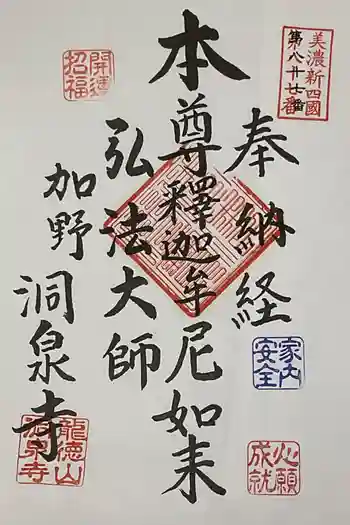 美濃新四國
第八十七番
奉納経
本尊釋迦牟尼如来
弘法大師
加野
洞泉寺
開運
招福
家内
安全
心願
成就
龍徳山
洞泉寺